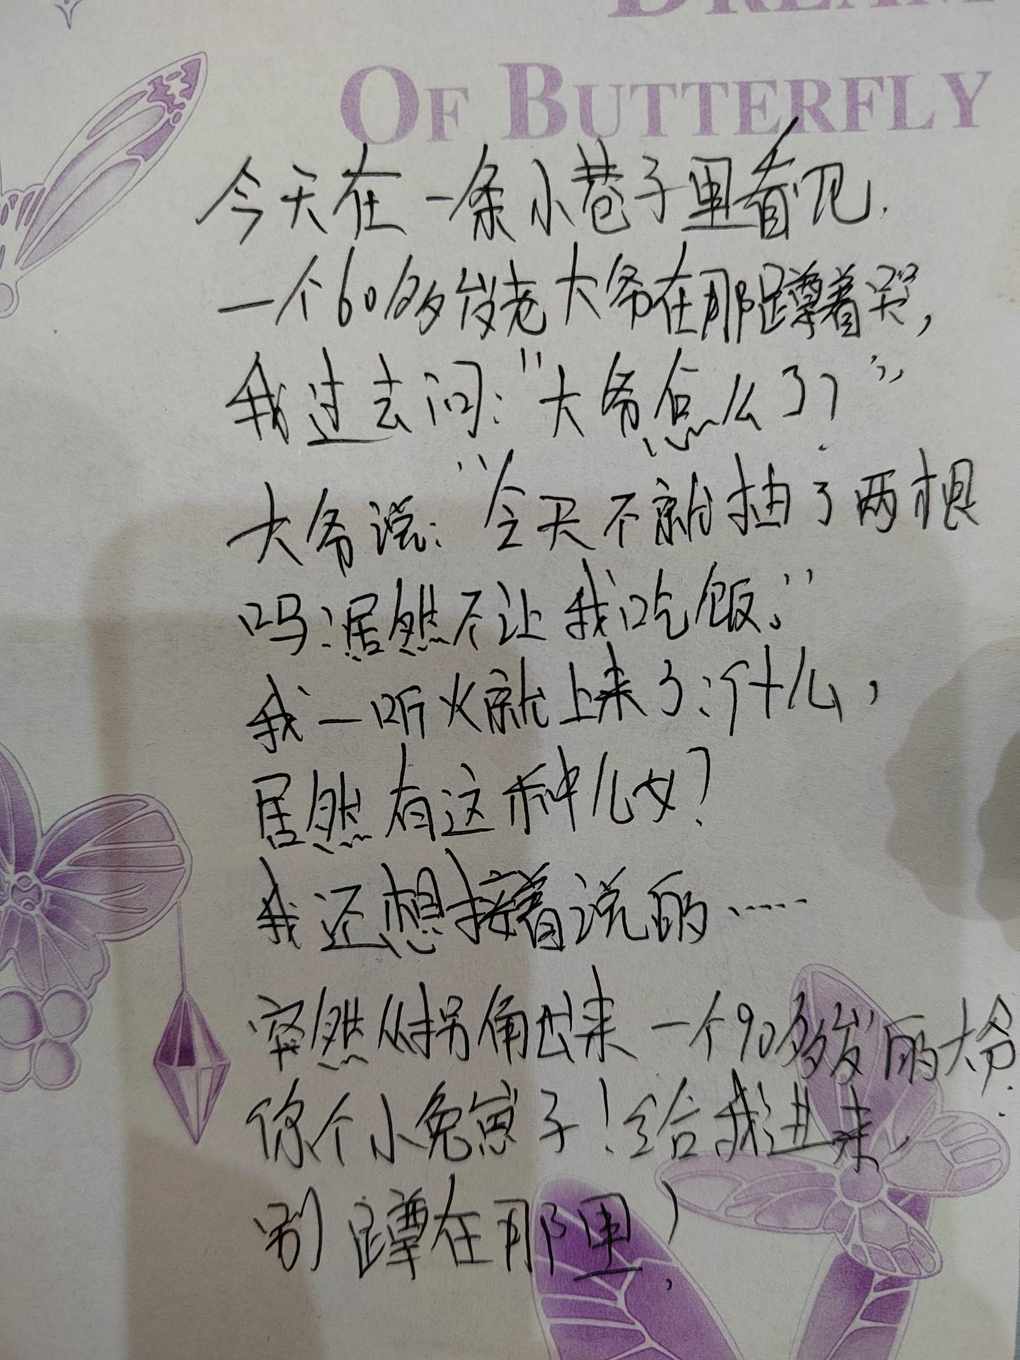 DREAM
OF BUTTERFLY
今天在一条小巷子里看见,
一个60多岁老大爷在那蹲着哭,
我过去问:"大爷怎么了?"
大爷说:"今天不就抽了两根
吗?居然不让我吃饭。"
我一听火就上来了:什么,
居然有这种儿女?
我还想接着说的……
突然从拐角出来一个90多岁的大爷:
你个小兔崽子!给我进来,
别蹲在那里!